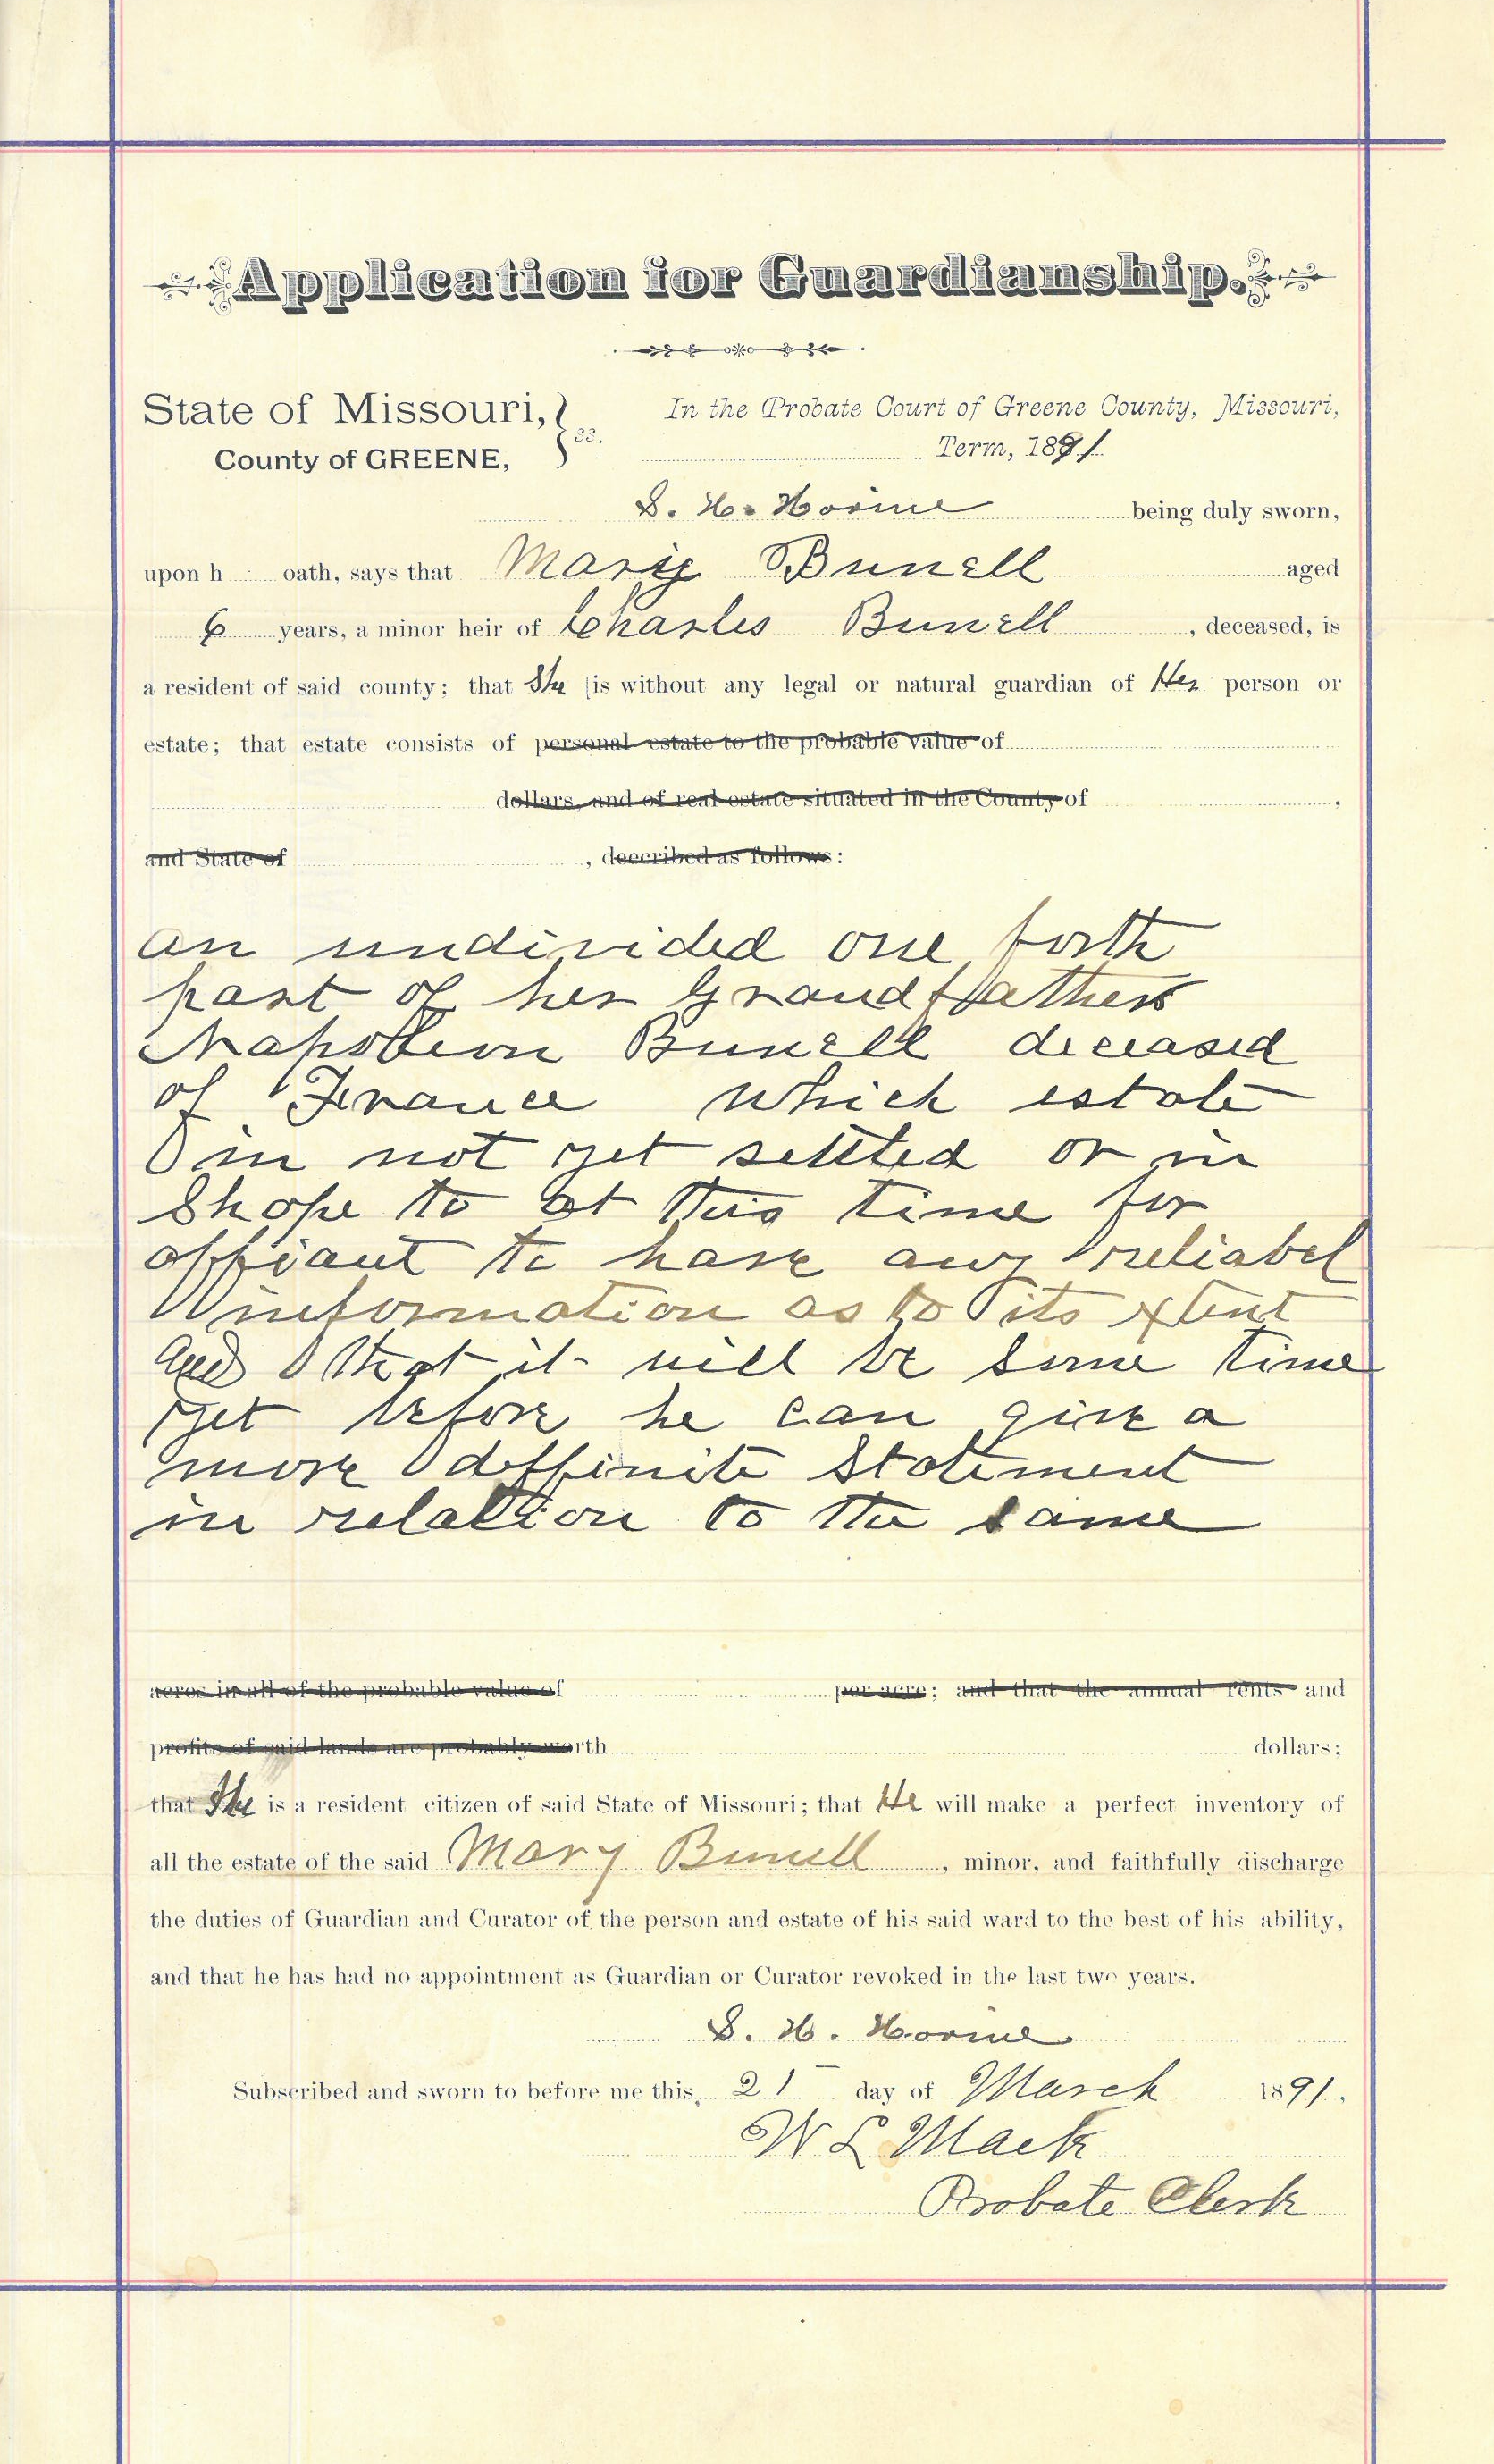 Application for Guardianship.
State of Missouri,
County of GREENE,
ss.
In the Probate Court of Greene County, Missouri,
Term, 1891
S. H. Horine being duly sworn,
upon h oath, says that Mary Bunell aged
6 years, a minor heir of Charles Bunell, deceased, is
a resident of said county; that She is without any legal or natural guardian of Her person or
estate; that estate consists of personal estate to the probable value of
dollars, and of real estate situated in the County of ,
and State of , deecribed as follows:
an undivided one forth
part of her Grandfathers
Napoleon Bunell deceased
of France which estate
in not yet settled or in
Shape to at this time for
affiant to have any reliabel
information as to its extent
and that it will be some time
yet before he can give a
more deffinite Statement
in relation to the same
acres in all of the probable value of per acre; and that the annual rents and
profits of said lands are probably worth dollars;
that She is a resident citizen of said State of Missouri; that He will make a perfect inventory of
all the estate of the said Mary Bunell, minor, and faithfully discharge
the duties of Guardian and Curator of the person and estate of his said ward to the best of his ability,
and that he has had no appointment as Guardian or Curator revoked in the last two years.
S. H. Horine
Subscribed and sworn to before me this, 21 day of March 1891.
W L Mack
Probate Clerk